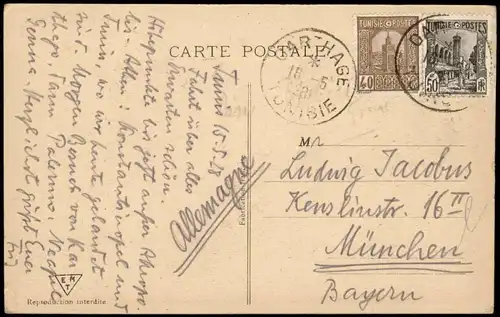 CARTE POSTALE
TUNISIE POSTES
40
TUNISIE POSTES
50
CARTHAGE
TUNISIE
Tunis 16.5.28
Fahrt über alles
Erwarten schön.
Höhepunkte bis jetzt außer Akropo-
lis - Athen: Konstantinopel und
Tunis, wo wir heute gelandet
sind. Morgen Besuch von Kar-
thago. Dann Palermo, Neapel
Genua. Herzlichst grüßt Euer
Allemagne
M
Ludwig Jacobus
Kenslinstr. 16 II
München
Bayern
EKT
Reproduction interdite